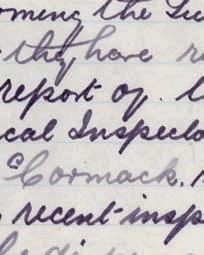 oming the
they have re
report of.
cal Inspecto
cCormack.
recent insp